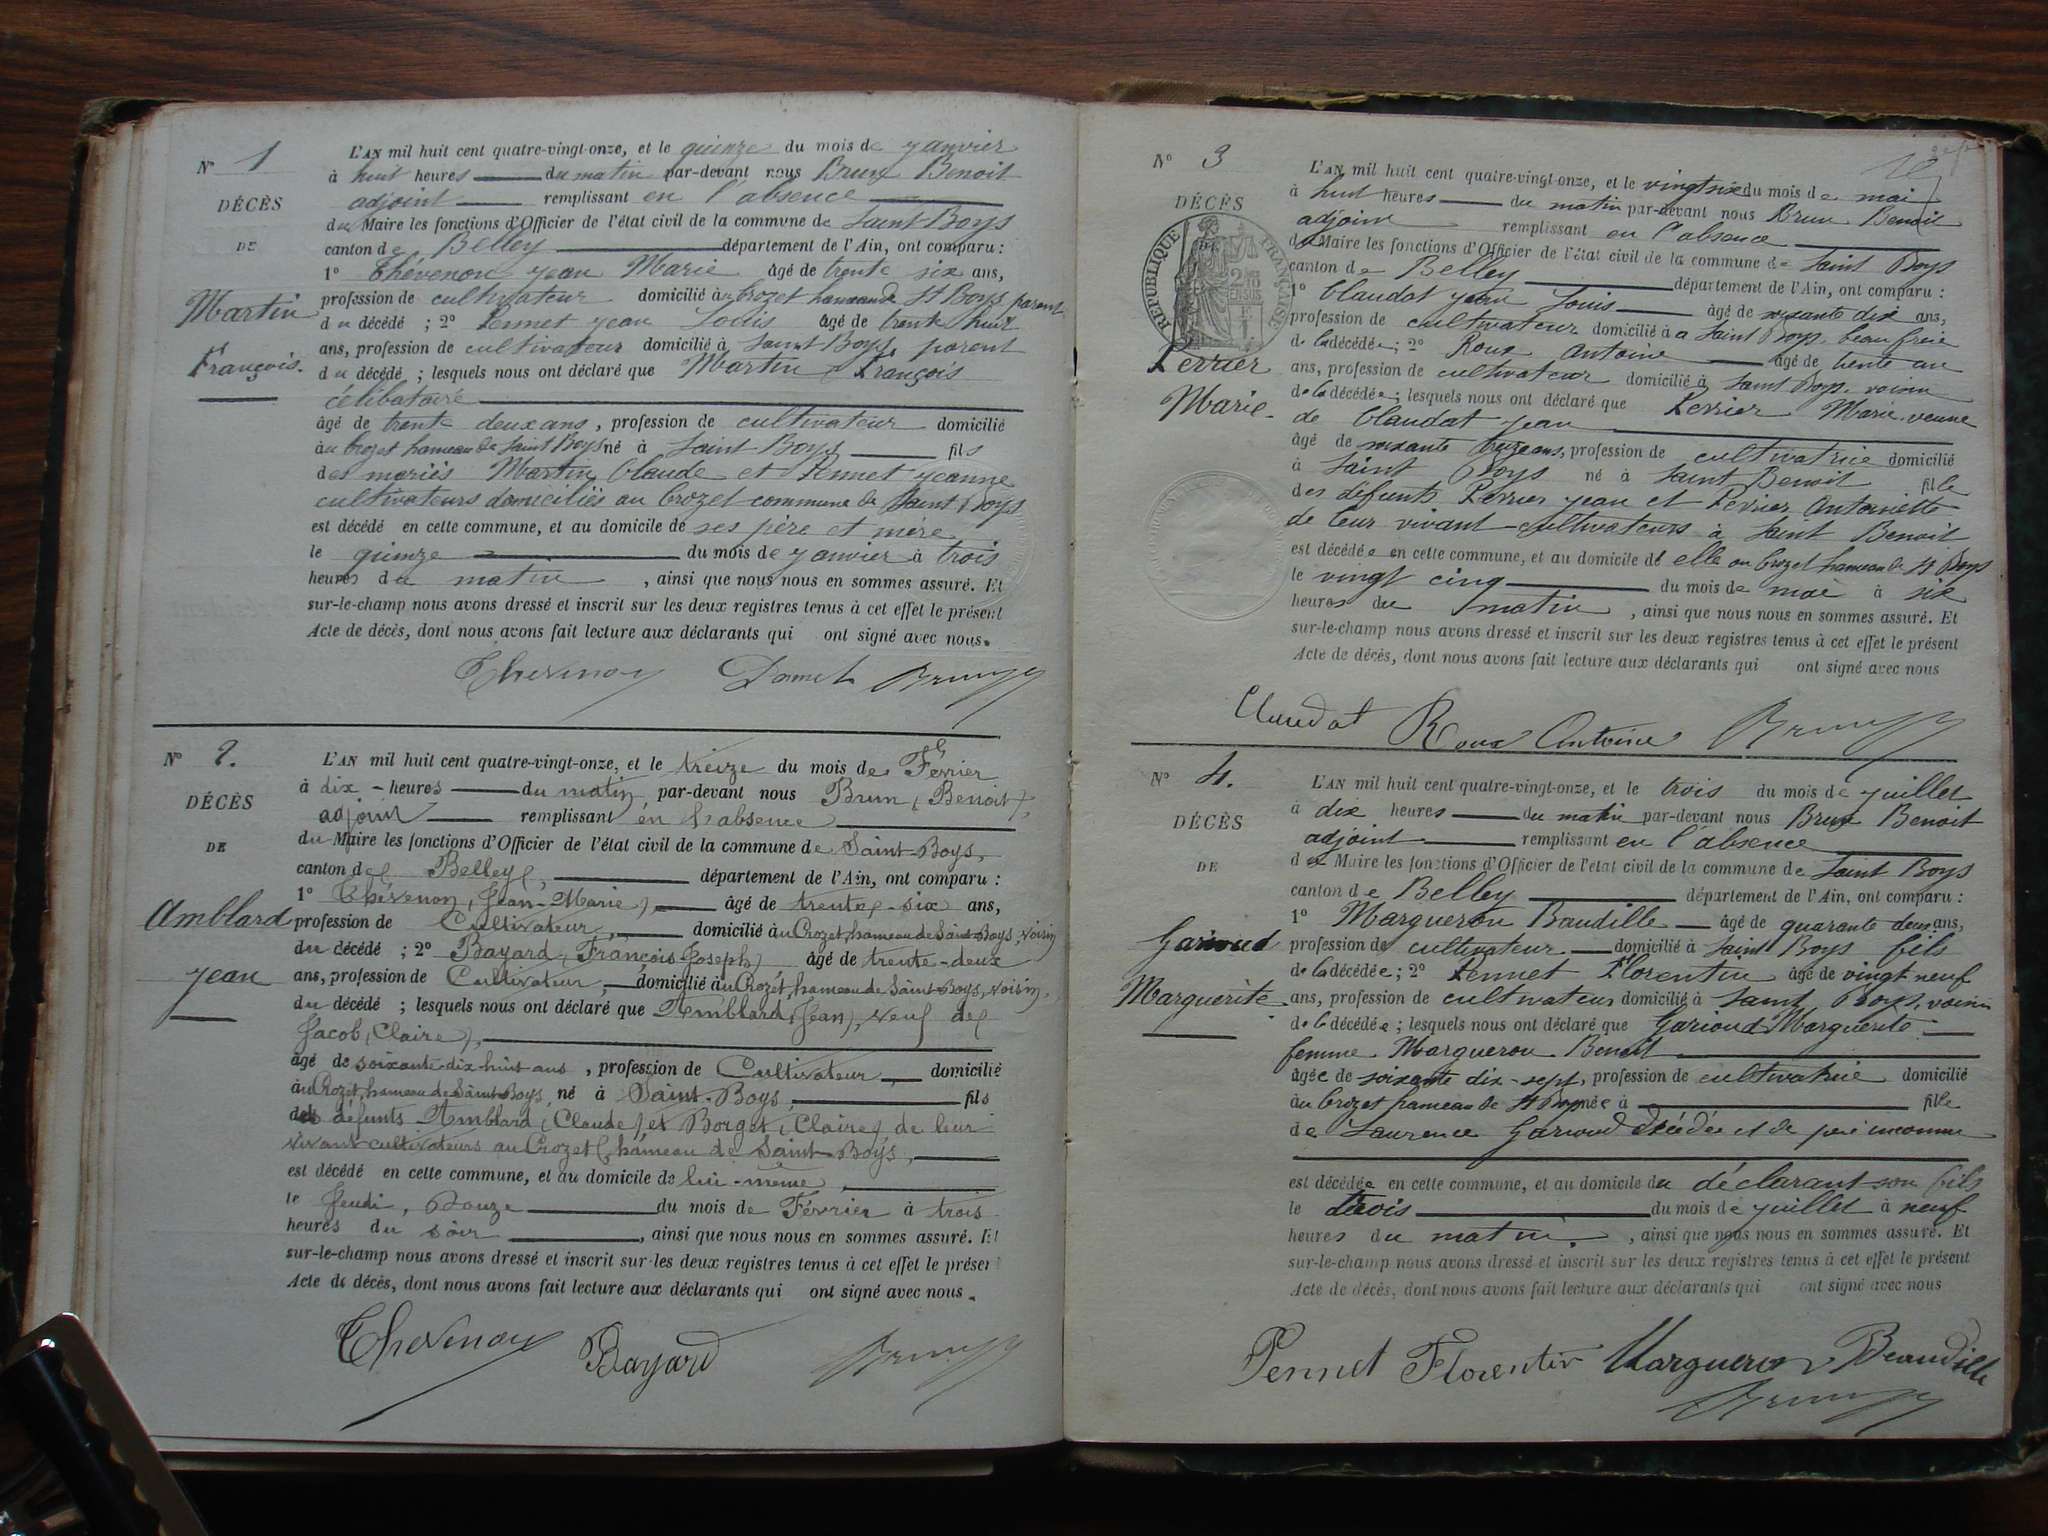 N° 1
DÉCÈS
DE
Martin
François.
L'AN mil huit cent quatre-vingt-onze, et le quinze du mois de janvier
à huit heures du matin par-devant nous Brun Benoit
adjoint remplissant en l'absence
du Maire les fonctions d'Officier de l'état civil de la commune de Saint Boys
canton de Belley département de l'Ain, ont comparu :
1° Thévenon Jean Marie âgé de trente six ans,
profession de cultivateur domicilié au Crozet hameau de St Boys parent
du décédé ; 2° Pennet Jean Louis âgé de trente huit
ans, profession de cultivateur domicilié à Saint Boys, parent
du décédé ; lesquels nous ont déclaré que Martin François
célibataire
âgé de trente deux ans, profession de cultivateur domicilié
au Crozet hameau de Saint Boys né à Saint Boys fils
des mariés Martin Claude et Pennet Jeanne
cultivateurs domiciliés au Crozet commune de Saint Boys
est décédé en cette commune, et au domicile de ses père et mère
le quinze du mois de janvier à trois
heures du matin, ainsi que nous nous en sommes assuré. Et
sur-le-champ nous avons dressé et inscrit sur les deux registres tenus à cet effet le présent
Acte de décès, dont nous avons fait lecture aux déclarants qui ont signé avec nous.
Thevenon Pennet Brun
N° 2.
DÉCÈS
DE
Amblard
Jean
L'AN mil huit cent quatre-vingt-onze, et le treize du mois de Février
à dix heures du matin, par-devant nous Brun, (Benoit),
adjoint remplissant en l'absence
du Maire les fonctions d'Officier de l'état civil de la commune de Saint-Boys,
canton de Belley, département de l'Ain, ont comparu :
1° Thévenon, (Jean-Marie), âgé de trente-six ans,
profession de Cultivateur, domicilié au Crozet, hameau de Saint-Boys, voisin
du décédé ; 2° Bayard, (François-Joseph) âgé de trente-deux
ans, profession de Cultivateur, domicilié au Crozet, hameau de Saint-Boys, voisin,
du décédé ; lesquels nous ont déclaré que Amblard, (Jean), veuf de
Jacob, (Claire),
âgé de soixante-dix-huit ans, profession de Cultivateur domicilié
au Crozet, hameau de Saint-Boys, né à Saint-Boys, fils
des défunts Amblard, (Claude) et Borget, (Claire) de leur
vivant cultivateurs au Crozet, hameau de Saint-Boys,
est décédé en cette commune, et au domicile de lui-même,
le Jeudi, douze du mois de Février à trois
heures du soir, ainsi que nous nous en sommes assuré. Et
sur-le-champ nous avons dressé et inscrit sur les deux registres tenus à cet effet le présent
Acte de décès, dont nous avons fait lecture aux déclarants qui ont signé avec nous.
Thevenon Bayard Brun
N° 3
DÉCÈS
RÉPUBLIQUE FRANÇAISE
Perrier
Marie
L'AN mil huit cent quatre-vingt-onze, et le vingt six du mois de mai
à huit heures du matin par-devant nous Brun Benoit
adjoint remplissant en l'absence
du Maire les fonctions d'Officier de l'état civil de la commune de Saint Boys
canton de Belley département de l'Ain, ont comparu :
1° Claudat Jean Louis âgé de soixante dix ans,
profession de cultivateur domicilié à Saint Boys beau frère
de la décédée ; 2° Roux Antoine âgé de trente un
ans, profession de cultivateur domicilié à Saint Boys, voisin
de la décédée ; lesquels nous ont déclaré que Perrier Marie veuve
de Claudat Jean
âgé de soixante treize ans, profession de cultivatrice domicilié
à Saint Boys né à Saint Benoit fille
des défunts Perrier Jean et Perrier Antoinette
de leur vivant cultivateurs à Saint Benoit
est décédée en cette commune, et au domicile de elle au Crozet hameau de St Boys
le vingt cinq du mois de mai à six
heures du matin, ainsi que nous nous en sommes assuré. Et
sur-le-champ nous avons dressé et inscrit sur les deux registres tenus à cet effet le présent
Acte de décès, dont nous avons fait lecture aux déclarants qui ont signé avec nous
Claudat Roux Antoine Brun
N° 4.
DÉCÈS
DE
Garioud
Marguerite
L'AN mil huit cent quatre-vingt-onze, et le trois du mois de juillet
à dix heures du matin par-devant nous Brun Benoit
adjoint remplissant en l'absence
du Maire les fonctions d'Officier de l'état civil de la commune de Saint Boys
canton de Belley département de l'Ain, ont comparu :
1° Margueron Baudille âgé de quarante deux ans,
profession de cultivateur domicilié à Saint Boys fils
de la décédée ; 2° Pennet Florentin âgé de vingt neuf
ans, profession de cultivateur domicilié à Saint Boys, voisin
de la décédée ; lesquels nous ont déclaré que Garioud Marguerite
femme Margueron Benoit
âgée de soixante dix-sept, profession de cultivatrice domicilié
au Crozet hameau de St Boys née à fille
de Laurence Garioud décédée et de père inconnu
est décédée en cette commune, et au domicile du déclarant son fils
le trois du mois de juillet à neuf
heures du matin, ainsi que nous nous en sommes assuré. Et
sur-le-champ nous avons dressé et inscrit sur les deux registres tenus à cet effet le présent
Acte de décès, dont nous avons fait lecture aux déclarants qui ont signé avec nous
Pennet Florentin Margueron Beaudille
Brun